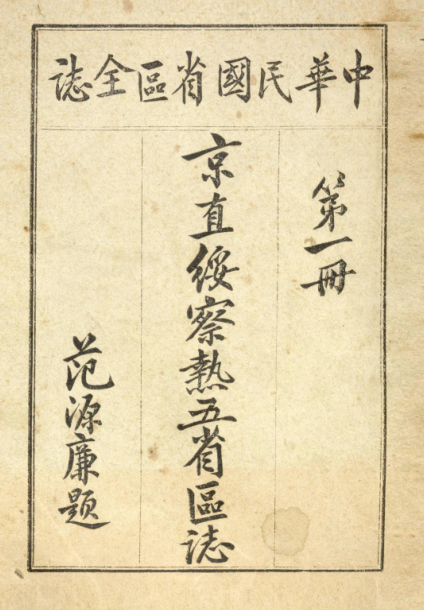 中華民國省區全誌
第一冊
京直綏察熱五省區誌
范源廉題